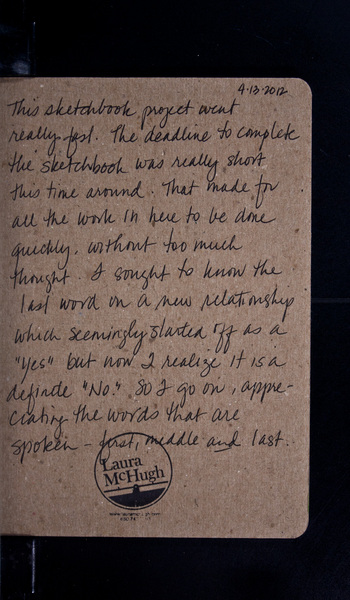 4·13·2012
This sketchbook project went
really fast. The deadline to complete
the sketchbook was really short
this time around. That made for
all the work in here to be done
quickly, without too much
thought. I sought to know the
last word on a new relationship
which seemingly started off as a
"Yes" but now I realize it is a
definite "No." So I go on, appre-
ciating the words that are
spoken – first, middle and last.
Laura
McHugh